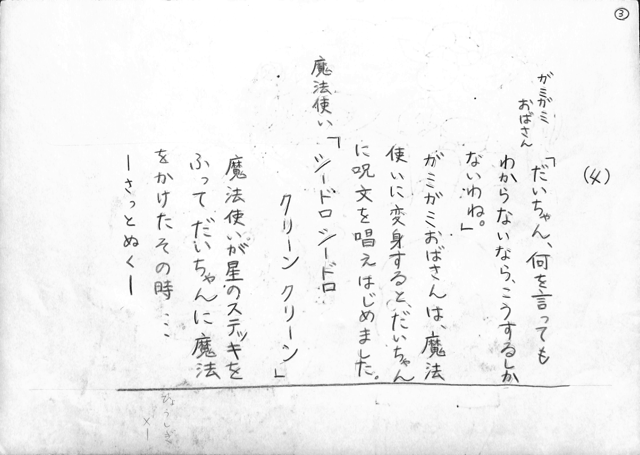 ③
(4)
ガミガミ
おばさん
「だいちゃん、何を言っても
わからないなら、こうするしか
ないわね。」
ガミガミおばさんは、魔法
使いに変身すると、だいちゃん
に呪文を唱えはじめました。
魔法使い「シードロ シードロ
クリーン クリーン」
魔法使いが星のステッキを
ふって だいちゃんに魔法
をかけたその時…
ーさっとぬくー